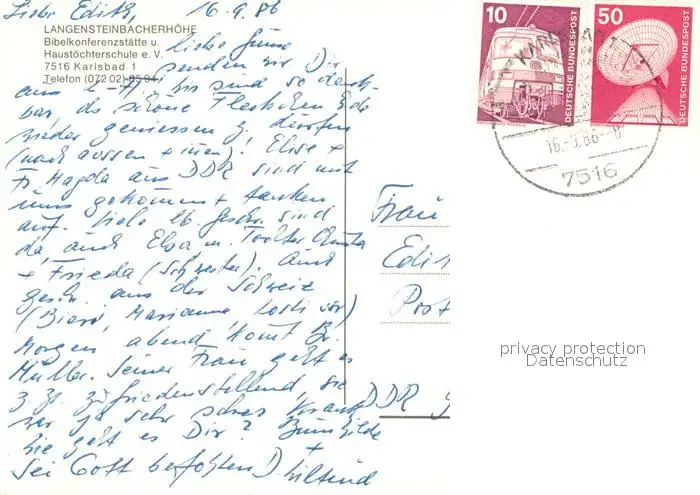 Liebe Edith, 16.9.86
LANGENSTEINBACHERHÖHE
Bibelkonferenzstätte u.
Haustöchterschule e. V.
7516 Karlsbad 1
Telefon (072 02) 85 94
liebe
senden wir Dir
aus wir sind so dank-
bar, das schöne Fleckchen Erde
wieder geniessen z. dürfen
(nach aussen + innen)! Elise +
Fr. Magda aus DDR sind mit
uns gekommen + tanken
auf. Viele lb. Geschw. sind
da, auch Elsa m. Tochter
+ Frieda (Schwester). Auch
Geschw. aus der Schweiz
Marianne
Morgen abend kommt Br.
Müller. Seiner Frau geht es
z. Zt. zufriedenstellend, sie
war ja sehr schwer krank
Wie geht es Dir?
Sei Gott befohlen!
10
DEUTSCHE BUNDESPOST
50
DEUTSCHE BUNDESPOST
7516
Frau
Edi
Post
DDR
privacy protection
Datenschutz